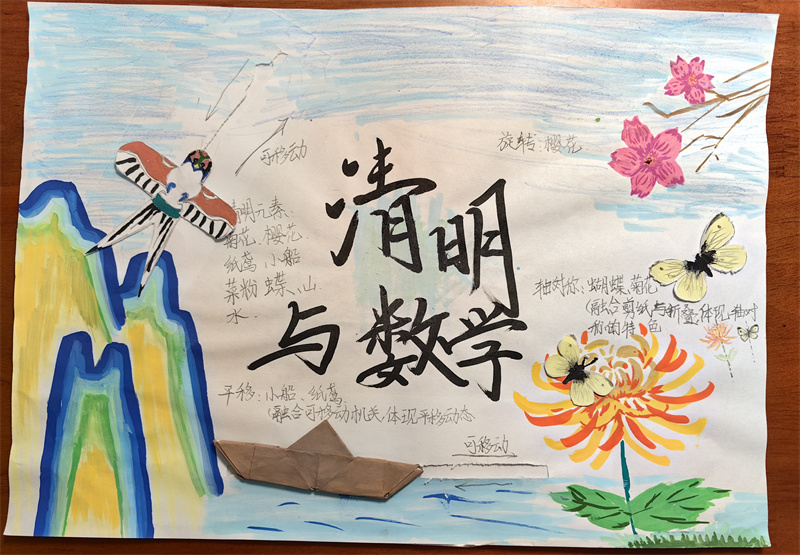 可移动
旋转:樱花
清明
与数学
清明元素:
菊花、樱花
纸鸢、小船
菜粉蝶、山
水.
轴对称:蝴蝶、菊花
(融合剪纸与折叠,体现轴对
称的特色
平移:小船、纸鸢
(融合可移动机关,体现平移动态
可移动